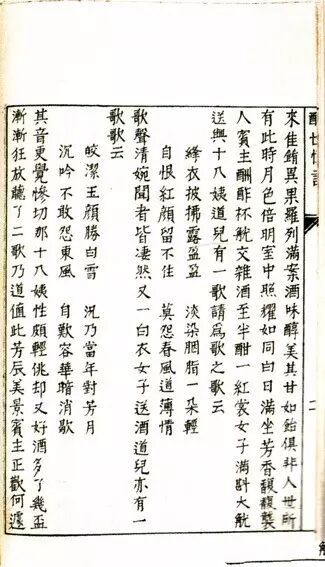 來佳餚異果羅列滿案酒味醇美其甘如飴俱非人世所
有此時月色倍明室中照耀如同白日滿坐芳香馥馥襲
人賓主酬酢杯觥交雜酒至半酣一紅裳女子滿斟大觥
送與十八姨道兒有一歌請爲歌之歌云
絳衣披拂露盈盈　淡染胭脂一朶輕
自恨紅顏留不住　莫怨春風道薄情
歌聲清婉聞者皆淒然又一白衣女子送酒道兒亦有一
歌歌云
皎潔玉顏勝白雪　況乃當年對芳月
沉吟不敢怨東風　自歎容華暗消歇
其音更覺慘切那十八姨性頗輕佻却又好酒多了幾盃
漸漸狂放聽了二歌乃道值此芳辰美景賓主正歡何遽